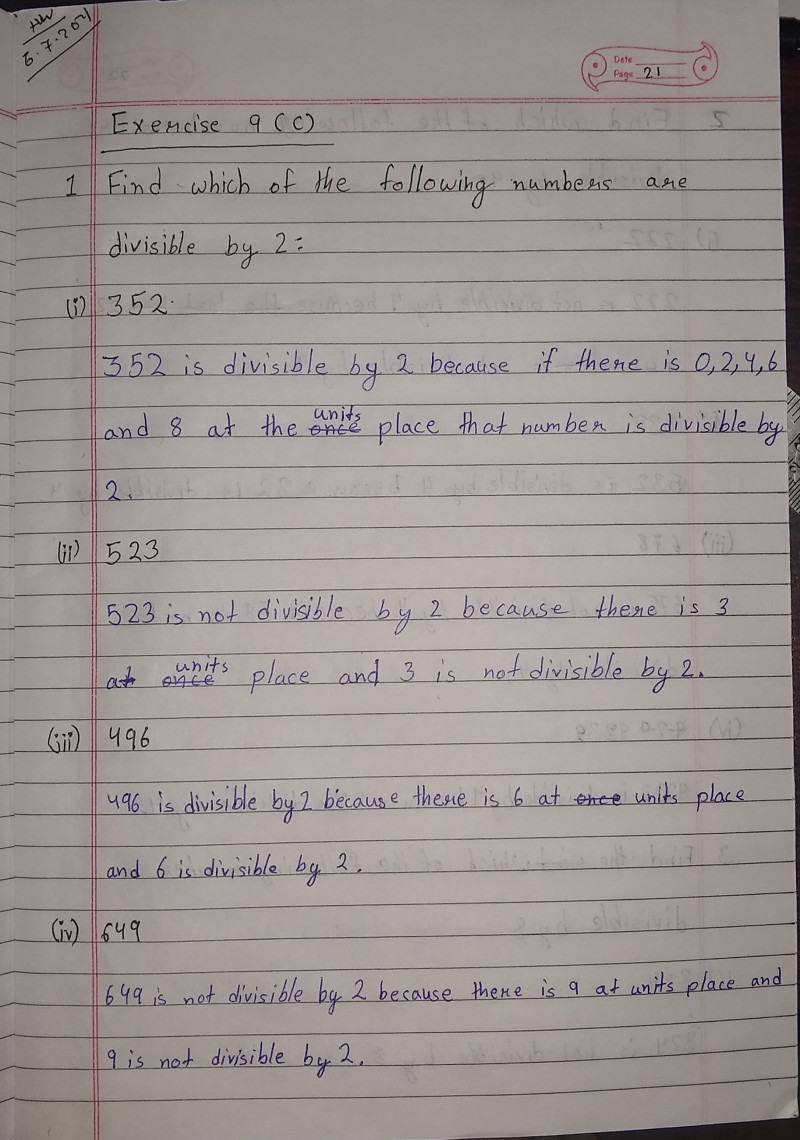 HW
6.7.2021
Date
Page 21
Exercise 9 (C)
1 Find which of the following numbers are
divisible by 2:
(i) 352.
352 is divisible by 2 because if there is 0,2,4,6
units
and 8 at the once place that number is divisible by
2.
(ii) 523
523 is not divisible by 2 because there is 3
units
at once place and 3 is not divisible by 2.
(iii) 496
496 is divisible by 2 because there is 6 at once units place
and 6 is divisible by 2.
(iv) 649
649 is not divisible by 2 because there is 9 at units place and
9 is not divisible by 2.